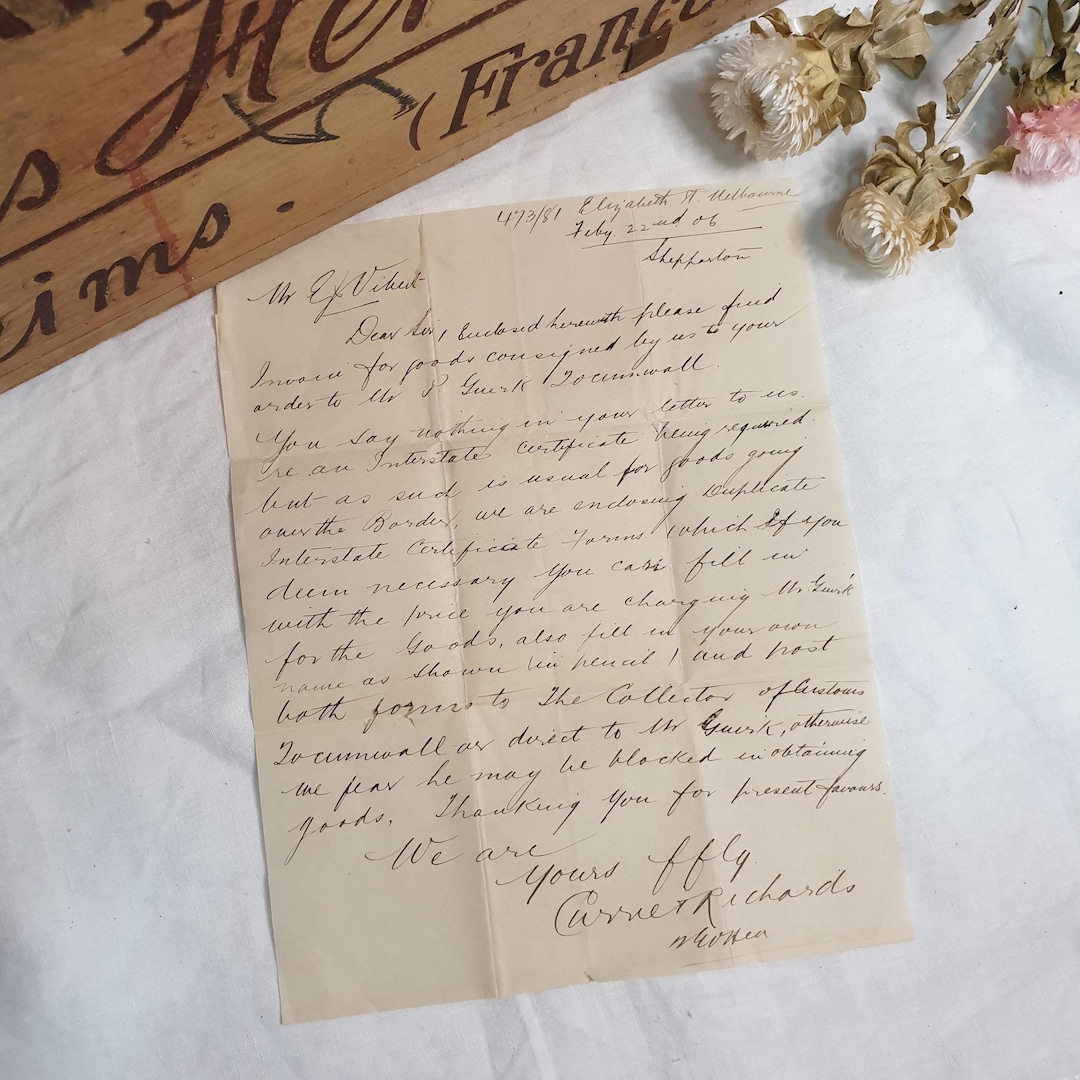 (Franc
s
eims.
473/81 Elizabeth St. Melbourne
Feby 22nd 06
Shepparton
Mr E Vibert
Dear Sir, Enclosed herewith please find
Invoice for goods consigned by us to your
order to Mr P. Guirk Tocumwall.
You say nothing in your letter to us.
re an Interstate Certificate being required.
but as such is usual for goods going
over the Border, we are enclosing Duplicate
Interstate Certificate Forms which if you
deem necessary you can fill in
with the price you are charging Mr. Guirk
for the Goods, also fill in your own
name as shown (in pencil) and post
both forms to The Collector of Customs
Tocumwall or direct to Mr Guirk, otherwise
we fear he may be blocked in obtaining
goods. Thanking you for present favours.
We are
Yours ffly
Currie & Richards